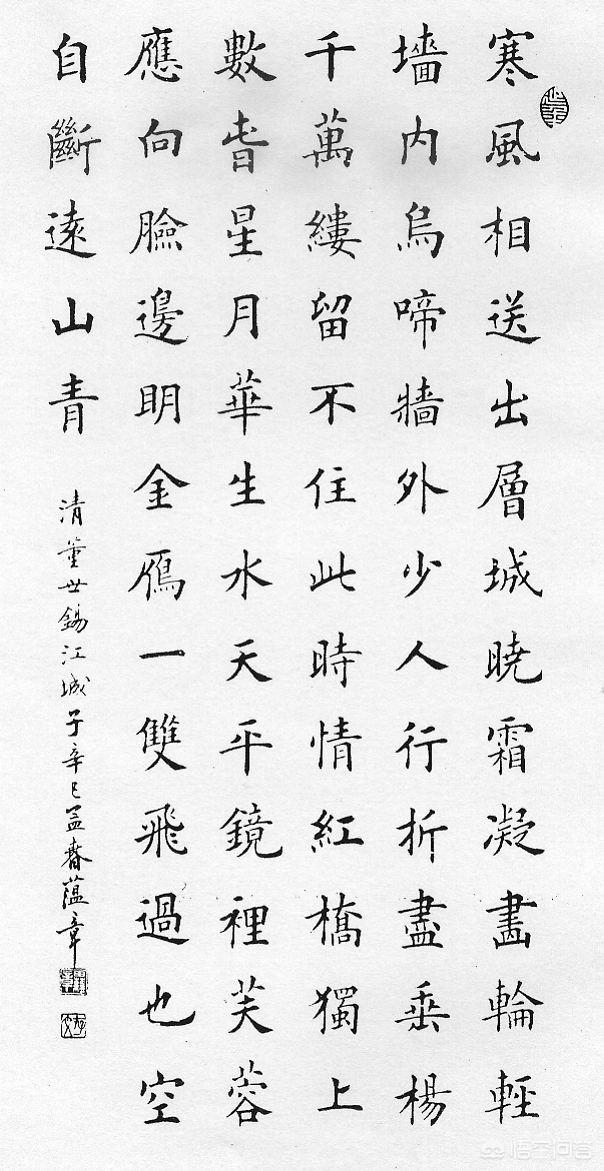 寒風相送出層城曉霜凝畫輪輕
墻内烏啼牆外少人行折盡垂楊
千萬縷留不住此時情紅橋獨上
數春星月華生水天平鏡裡芙蓉
應向臉邊明金雁一雙飛過也空
自斷遠山青
清董世錫江城子辛巳孟春蘊章
悟空问答